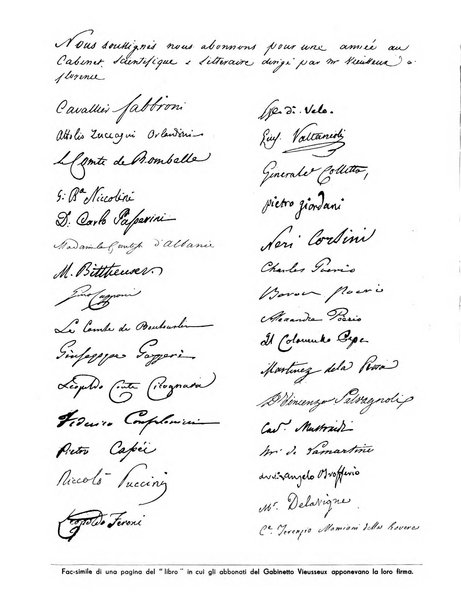 Nous soussignés nous abonnons pour une année au
Cabinet Scientifique & Litteraire dirigé par mr Vieusseux à
florence
Cavallier fabbroni
Attilio Zuccagni Orlandini
Le Comte de Bombelle
G: Bª Niccolini
Dr. Carlo Passerini
Madame la Comtesse d'Albanie
M. Bittheuser
Gino Capponi
Le Comte de
Giuseppe Gazzeri
Leopoldo Conte Cicognara
Federico Confalonieri
Pietro Capei
Niccolò Puccini
Leopoldo Feroni
de Velo.
Valtancoli
Generale Colletta,
pietro giordani
Neri Corsini
Charles Poerio
Baron Poerio
Alexandre Poerio
Il Colonnello Pepe
Martinez de la Rosa
Dr Vincenzo Salvagnoli
Cav. Mustoxidi
de Lamartine
Angelo Brofferio
Mr. Delavigne
Ce. Terenzio Mamiani della Rovere
Fac-simile di una pagina del "libro" in cui gli abbonati del Gabinetto Vieusseux apponevano la loro firma.